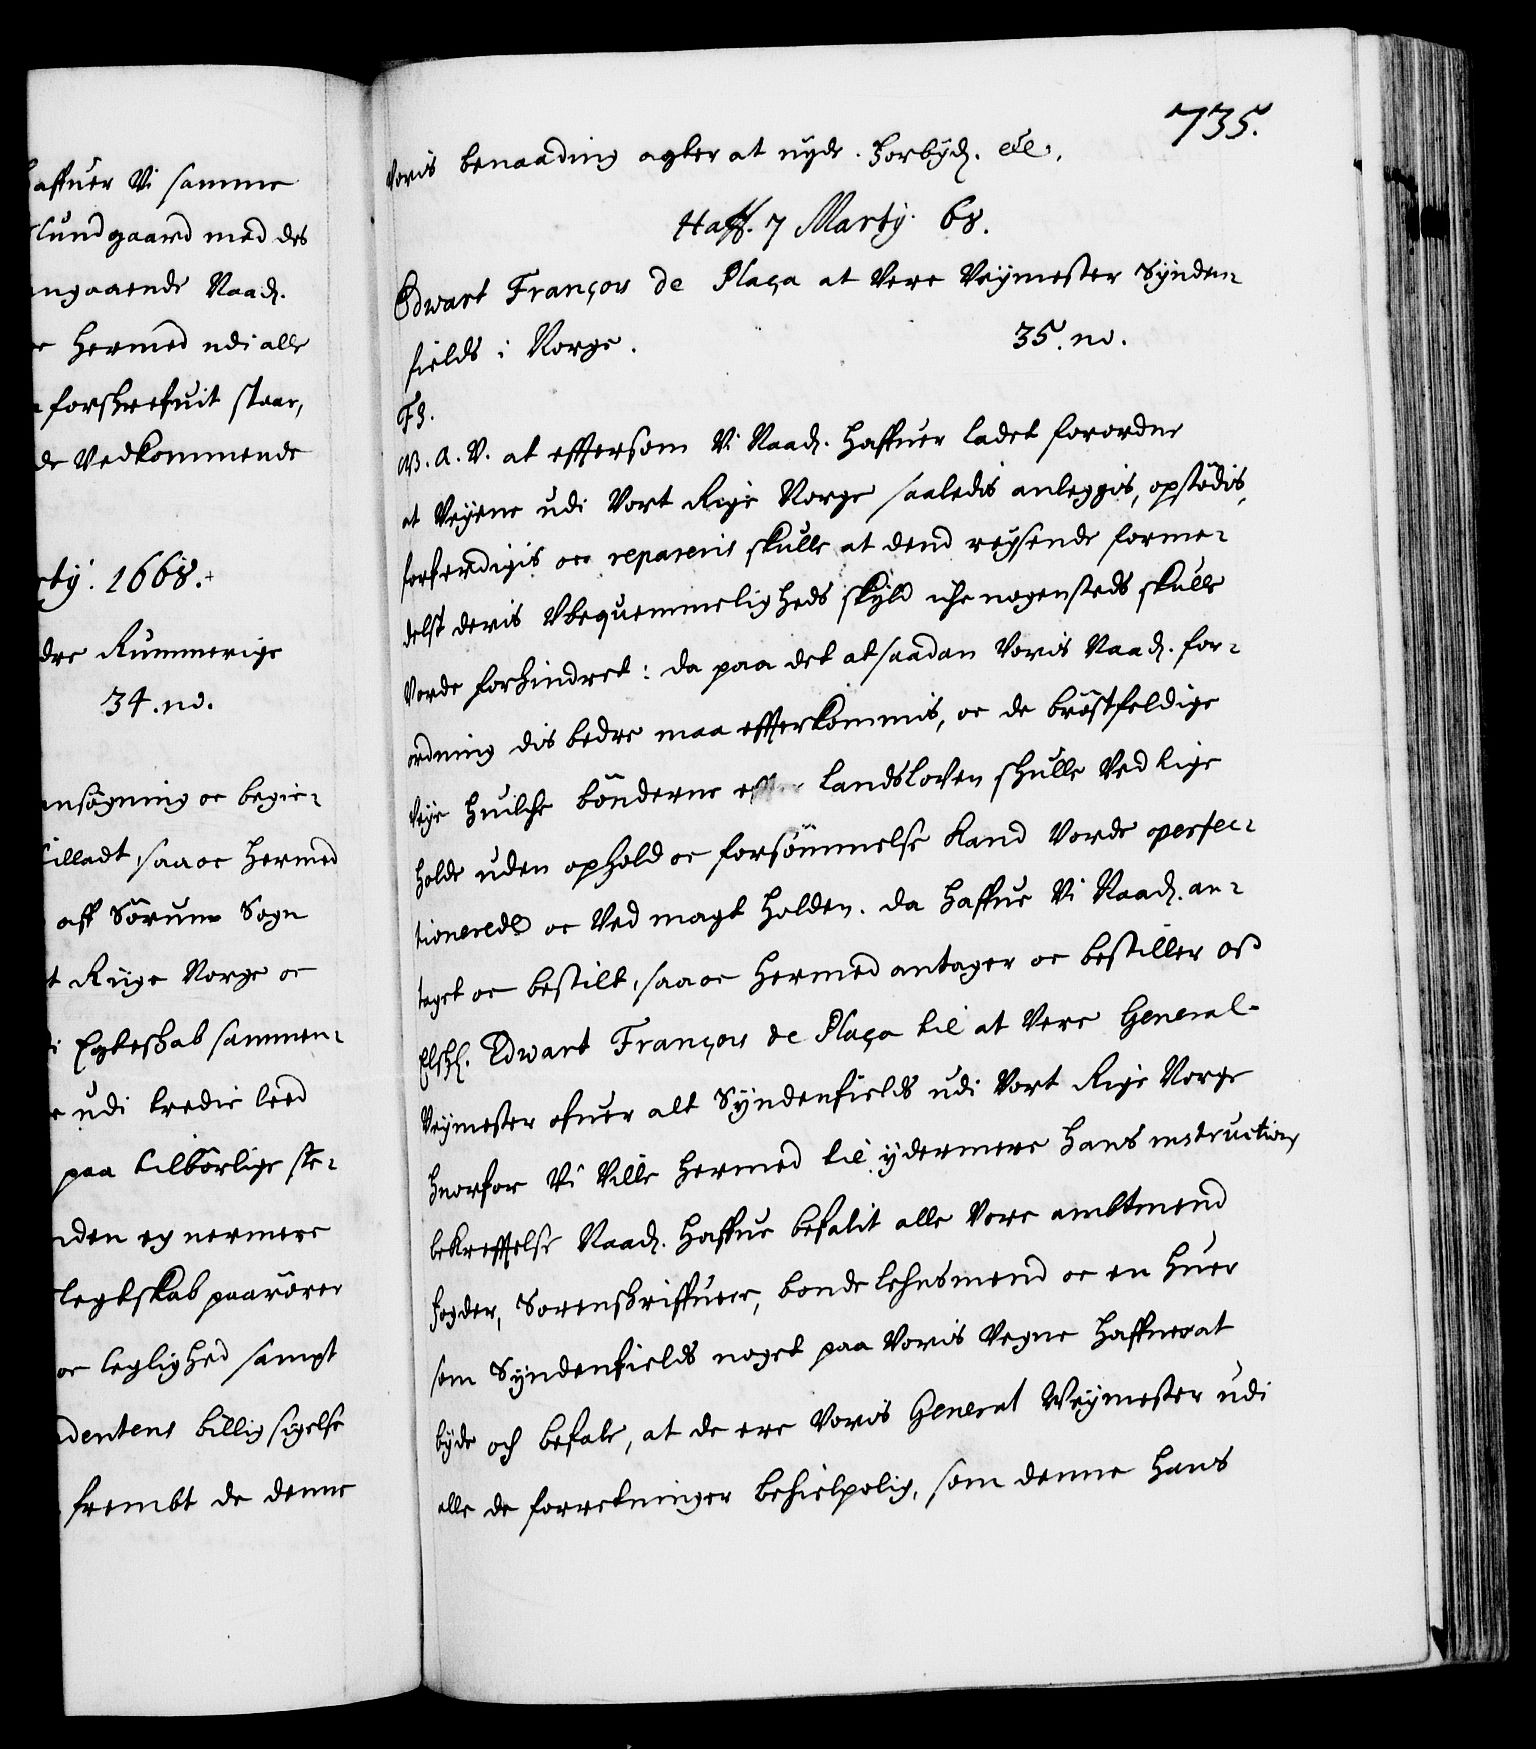 haffuer Vi samme
lund gaard med des
angaaende Naad.
hermed udi alle
forskrefuit staar,
de Vedkommende
rtij. 1668.
dre Rummerige
34. no.
ansøgning oc begie-
tilladt, saa oc hermed
aff Sørum Sogn
t Rüge Norge oc
i Egteskab sammen-
udi tredie leed
paa tilbørlige ste-
nden eg nermere
legtskab paarører
oc leglighed sampt
dentens billig sigelse
frembt de denne
735.
voris benaading agter at nyde. Forbyd. etc.
Haff. 7 Martij. 68.
Edwart François de Plaça at Vere Veymester Synden-
fields i Norge. 35. no.
F3.
W. A. V. at effter som Vi Naad. haffuer ladet forordne
at Veyene udi Vort Rige Norge saaledis anleggis, opstødis,
forferdigis oc repareris skulle at dend reysende forme-
delst deris Vbequemmeligheds skyld iche nogensteds skulle
Vorde forhindret: da paa det at saadan Voris Naad. for-
ordning dis bedre maa effterkommis, oc de brøstfeldige
Veye huilche bønderne effter landsloven skulle Ved lige
holde uden ophold oc forsømmelse kand Vorde perfec-
tionerede oc Ved magt holden. da haffue Vi Naad. an-
taget oc bestilt, saa oc hermed antager oc bestiller os
Elskl. Edwart François de Plaça til at Vere General-
Veymester ofuer alt Syndenfields udi Vort Rige Norge
huorfor Vi Ville hermed til ydermere hans instructions
bekreffelse Naad. haffue befalit alle Vore ambtmend
fogder, Sorenskriffuere, bonde lehnsmend oc en huer
som Syndenfields noget paa Voris Vegne haffuer at
byde och befale, at de ere Voris General Weymester udi
alle de forretninger behielpelig, som denne hans